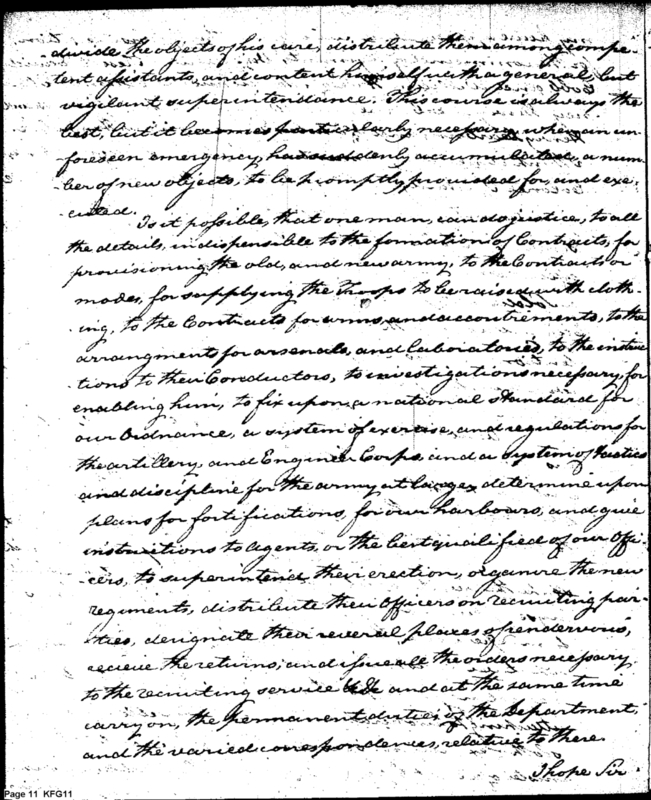 divide the objects of his care, distribute them among compe-
tent assistants, and content himself with a general, but
vigilant superintendance. This course is always the
best, but it becomes particularly necessary when an un-
foreseen emergency, has suddenly accumulated, a num-
ber of new objects, to be promptly provided for, and exe-
cuted.
Is it possible, that one man, can do justice, to all
the details, indispensible to the formation of Contracts, for
provisioning the old, and new army, to the Contracts or
modes, for supplying the Troops to be raised with cloth-
ing, to the Contracts for arms, and accoutrements, to the
arrangments for arsenals, and laboratories, to the instruc
tions to their Conductors, to investigations necessary, for
enabling him, to fix upon a national standard for
our Ordnance, a system of exercise, and regulations for
the artillery, and Engineer Corps, and a system of tactics
and discipline for the army at large, determine upon
plans for fortifications, for our harbours, and give
instructions to agents, or the best qualified of our Offi-
cers, to superintend their erection, organize the new
regiments, distribute their Officers on recruiting par-
ties, designate their several places of rendezvous,
receive the returns, and issue all the orders necessary
to the recruiting service &c and at the same time
carry on, the permanent duties of the Department,
and the varied correspondences, relative to these.
I hope Sir
Page 11 KFG11